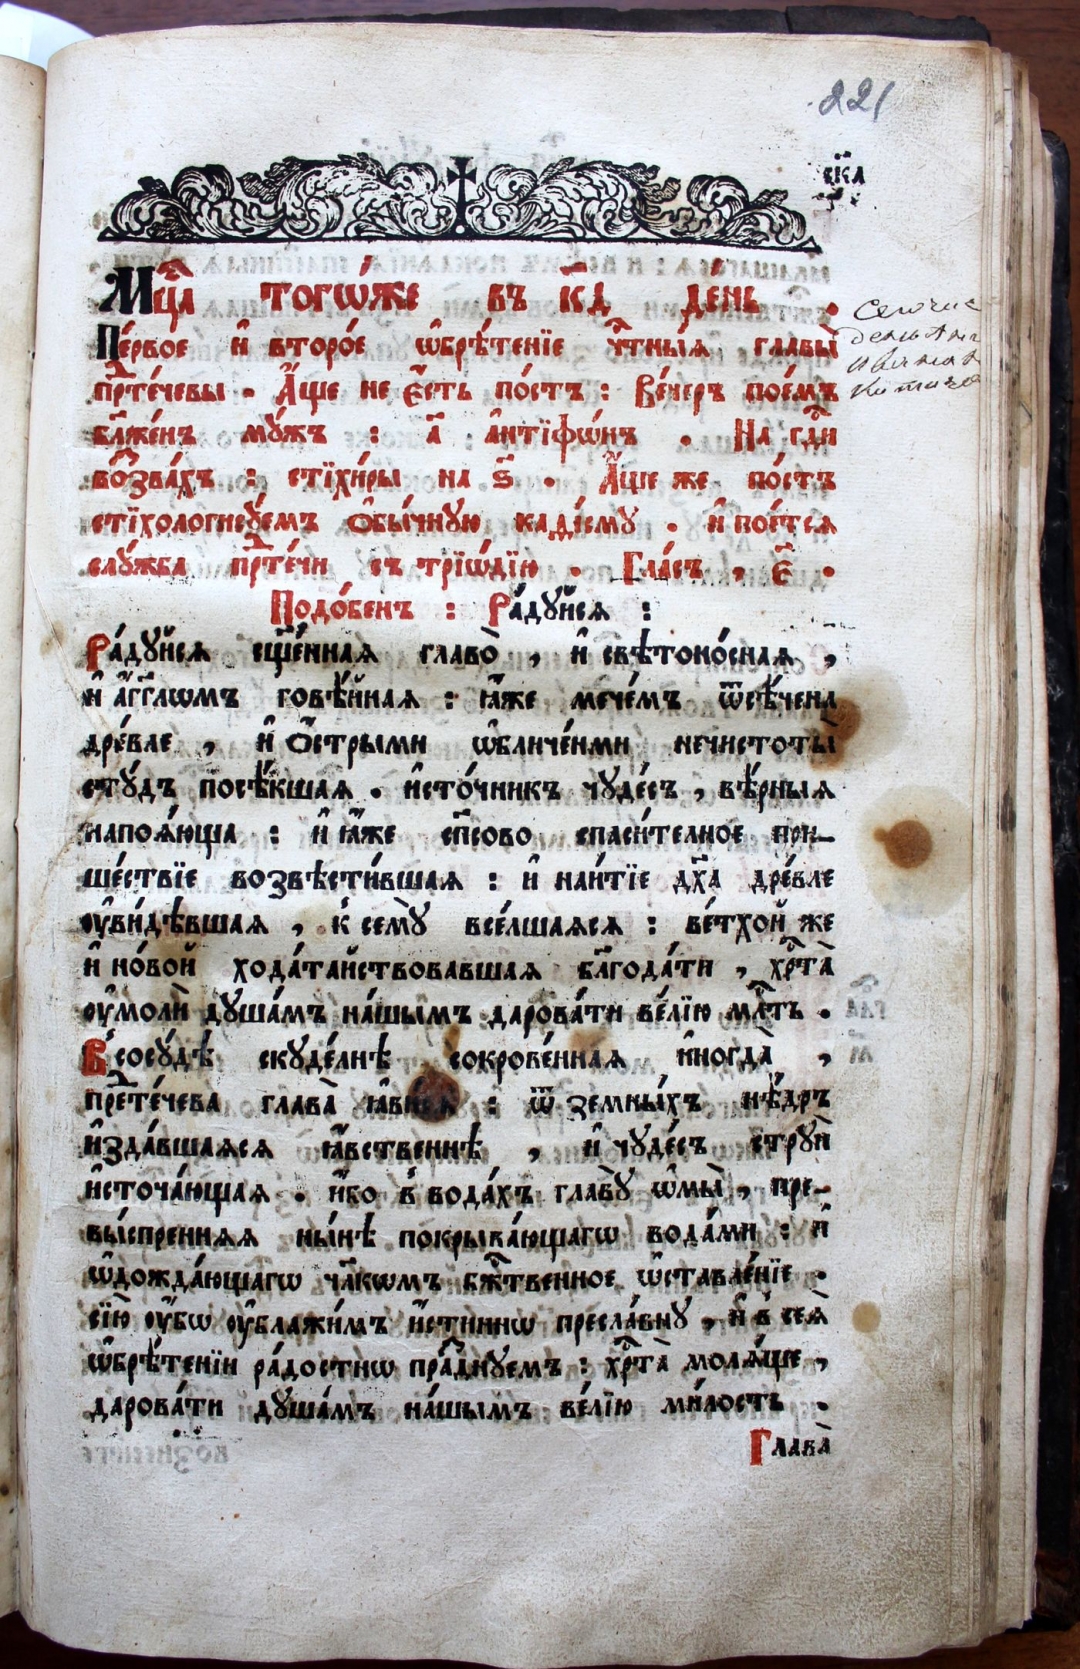 221
ск҃а
Мцⷭ҇а тогѡ́же въ к҃д де́нь .
Пе́рвое и҆ второ́е ѡ҆брѣ́тенїе чⷭ҇тны́ѧ главы̀
прⷣте́чевы . А҆́ще не є҆́сть по́стъ : Ве́черъ пое́мъ
бл҃же́нъ мꙋ́жъ : а҃ а҆нтїфѡ́нъ . На гдⷭ҇и
воззва́хъ : стїхи́ры на ѕ҃ . А҆́ще же по́стъ
стїхологисꙋ́емъ ѻ҆бы́чнꙋю каѳі́смꙋ . и҆ пое́тсѧ
слꙋ́жба прⷣте́чи съ трїѡ́дїю . Гла́съ , є҃ .
Подо́бенъ : Ра́дꙋйсѧ :
Ра́дꙋйсѧ сщ҃е́ннаѧ главо̀ , и҆ свѣтоно́снаѧ ,
и҆ а҆́гг҃лѡмъ говѣ́йнаѧ : ꙗ҆́же мече́мъ ѿсѣ́чена
дре́вле , и҆ ѻ҆́стрыми ѡ҆бличе́ньми нечистоты̀
стꙋ́дъ посѣ́кшаѧ . и҆сто́чникъ чꙋде́съ , вѣ́рныѧ
напоѧ́юща : и҆ ꙗ҆́же сп҃сово спаси́телное при-
ше́ствїе возвѣсти́вшаѧ : и҆ наи́тїе дх҃а дре́вле
ᲂу҆ви́дѣвшаѧ , к̾ семꙋ̀ все́лшаѧсѧ : ве́тхой же
и҆ но́вой хода́тайствовавшаѧ бл҃года́ти , хрⷭ҇та̀
ᲂу҆молѝ дꙋша́мъ на́шымъ дарова́ти ве́лїю млⷭ҇ть .
В̾ сосꙋ́дѣ скꙋде́лнѣ сокрове́ннаѧ и҆ногда̀ ,
прⷣте́чева глава̀ ꙗ҆ви́сѧ : ѿ земны́хъ нѣ́дръ
и҆зда́вшаѧсѧ ꙗ҆́вственнѣ , и҆ чꙋде́съ стрꙋи̑
и҆сточа́ющаѧ . и҆́бо в̾ вода́хъ главꙋ̀ ѡ҆мы̀ , пре-
вы́спреннѧѧ ны́нѣ покрыва́ющагѡ вода́ми : и҆
ѡ҆дожда́ющагѡ чл҃кѡмъ бжⷭ҇твенное ѡ҆ставле́нїе .
сїю̀ ᲂу҆́бѡ ᲂу҆блажи́мъ и҆́стиннѡ пресла́внꙋ , и҆ в̾ сеѧ̀
ѡ҆брѣ́тенїи ра́достнѡ пра́зⷣнꙋемъ : хрⷭ҇та̀ молѧ́ще ,
дарова́ти дꙋша́мъ на́шымъ ве́лїю ми́лость .
Глава̀